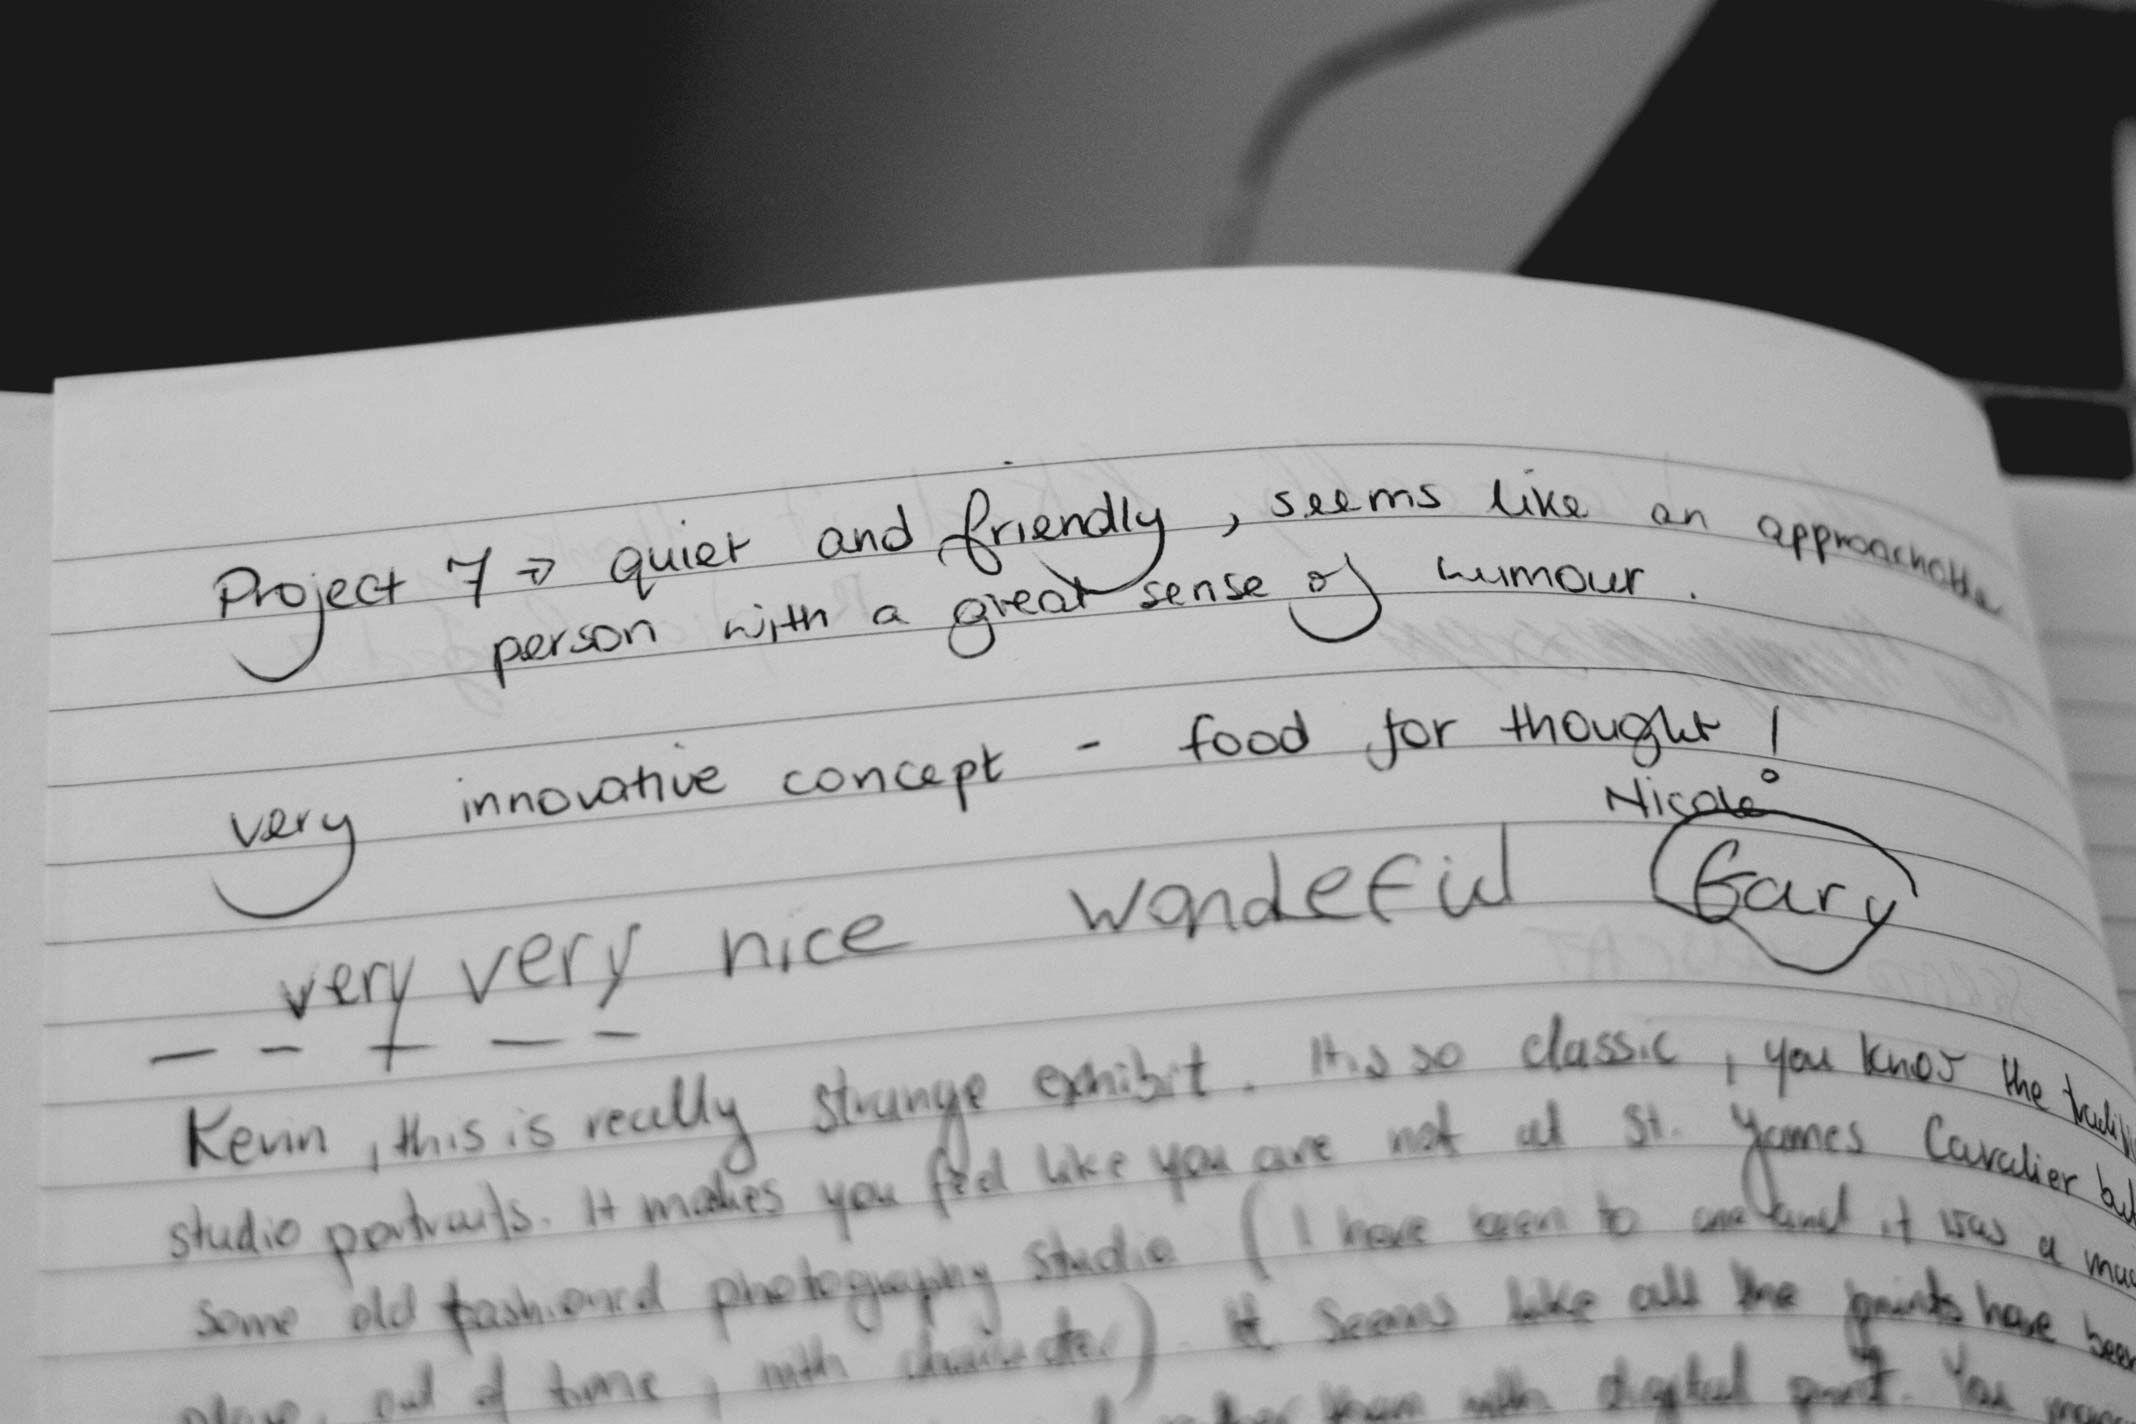 Project 7 → quiet and friendly, seems like an approachable
person with a great sense of humour.
very innovative concept - food for thought!
Nicole
very very nice wondeful Gary
Kevin, this is really strange exhibit. It is so classic, you know the
studio portraits. It makes you feel like you are not at St. Yames Cavalier but
some old fashioned photography studio (I have been to one and it was a
place, out of time, with character). It seems like all the prints have been
rather than with digital print. You